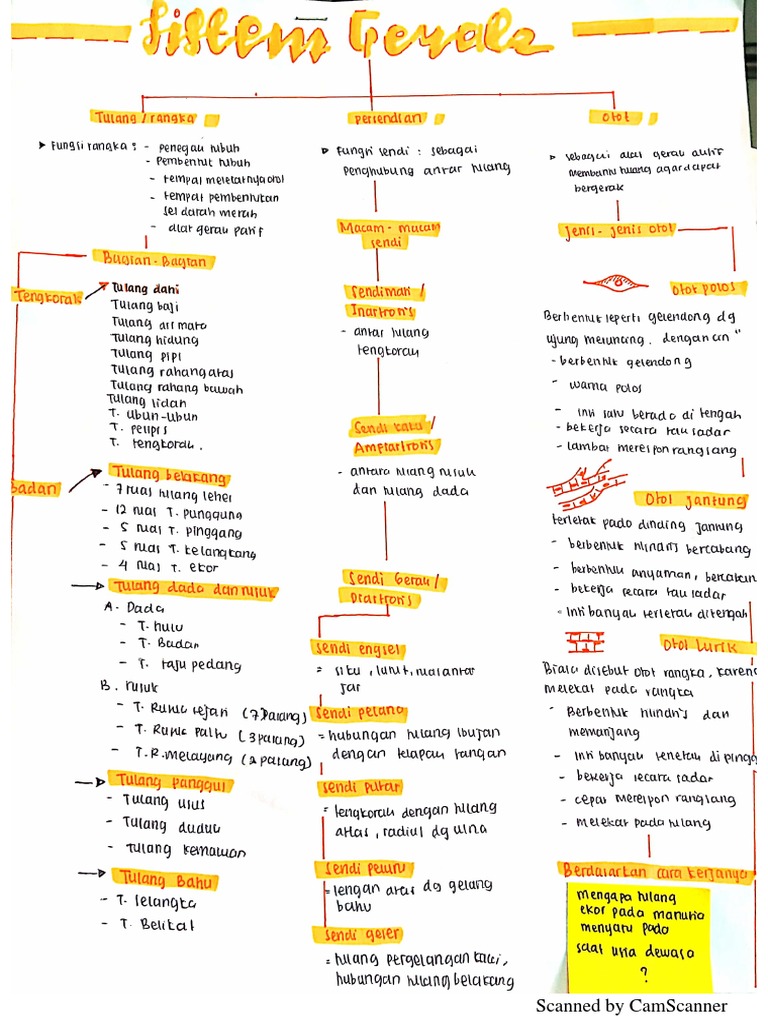 Sistem Gerak
Tulang / rangka
Fungsi rangka : - penegak tubuh
- Pembentuk tubuh
- tempat meletaknya otot
- tempat pembentukan
sel darah merah
- alat gerak pasif
Bagian - Bagian
Tengkorak
Tulang dahi
Tulang baji
Tulang air mata
Tulang hidung
Tulang pipi
Tulang rahang atas
Tulang rahang bawah
Tulang lidah
T. ubun-ubun
T. pelipis
T. tengkorak.
Badan
Tulang belakang
- 7 ruas tulang leher
- 12 ruas T. punggung
- 5 ruas T. pinggang
- 5 ruas T. kelangkang
- 4 ruas T. ekor
Tulang dada dan rusuk
A. Dada
- T. hulu
- T. Badan
- T. taju pedang
B. rusuk
- T. Rusuk sejati (7 pasang)
- T. Rusuk palsu (3 pasang)
- T.R. Melayang (2 pasang)
Tulang panggul
- Tulang usus
- Tulang duduk
- Tulang kemaluan
Tulang Bahu
- T. selangka
- T. Belikat
persendian
Fungsi sendi : sebagai
penghubung antar tulang
Macam - macam
sendi
Sendi mati /
Inartrosis
- antar tulang
tengkorak
Sendi kaku /
Ampiartrosis
- antara tulang rusuk
dan tulang dada
Sendi Gerak /
Diartrosis
Sendi engsel
= siku, lutut, ruas antar
jari
Sendi pelana
= hubungan tulang ibujari
dengan telapak tangan
sendi putar
= tengkorak dengan tulang
atlas, radius dg ulna
sendi peluru
= lengan atas dg gelang
bahu
sendi geser
= tulang pergelangan kaki,
hubungan tulang belakang
Otot
sebagai alat gerak aktif
membantu tulang agar dapat
bergerak
Jenis - jenis otot
Otot polos
Berbentuk seperti gelendong dg
ujung meruncing. dengan ciri"
- berbentuk gelendong
- warna polos
- inti satu berada di tengah
- bekerja secara tak sadar
- lambat merespon rangsang
Otot jantung
terletak pada dinding jantung
- berbentuk silindris bercabang
- berbentuk anyaman, bercabang
- bekerja secara tak sadar
- inti banyak terletak ditengah
Otot Lurik
Biasa disebut otot rangka, karena
melekat pada rangka
- Berbentuk silindris dan
memanjang
- inti banyak terletak di pingg
- bekerja secara sadar
- cepat merespon rangsang
- melekat pada tulang
Berdasarkan cara kerjanya
mengapa tulang
ekor pada manusia
menyatu pada
saat usia dewasa
?
Scanned by CamScanner